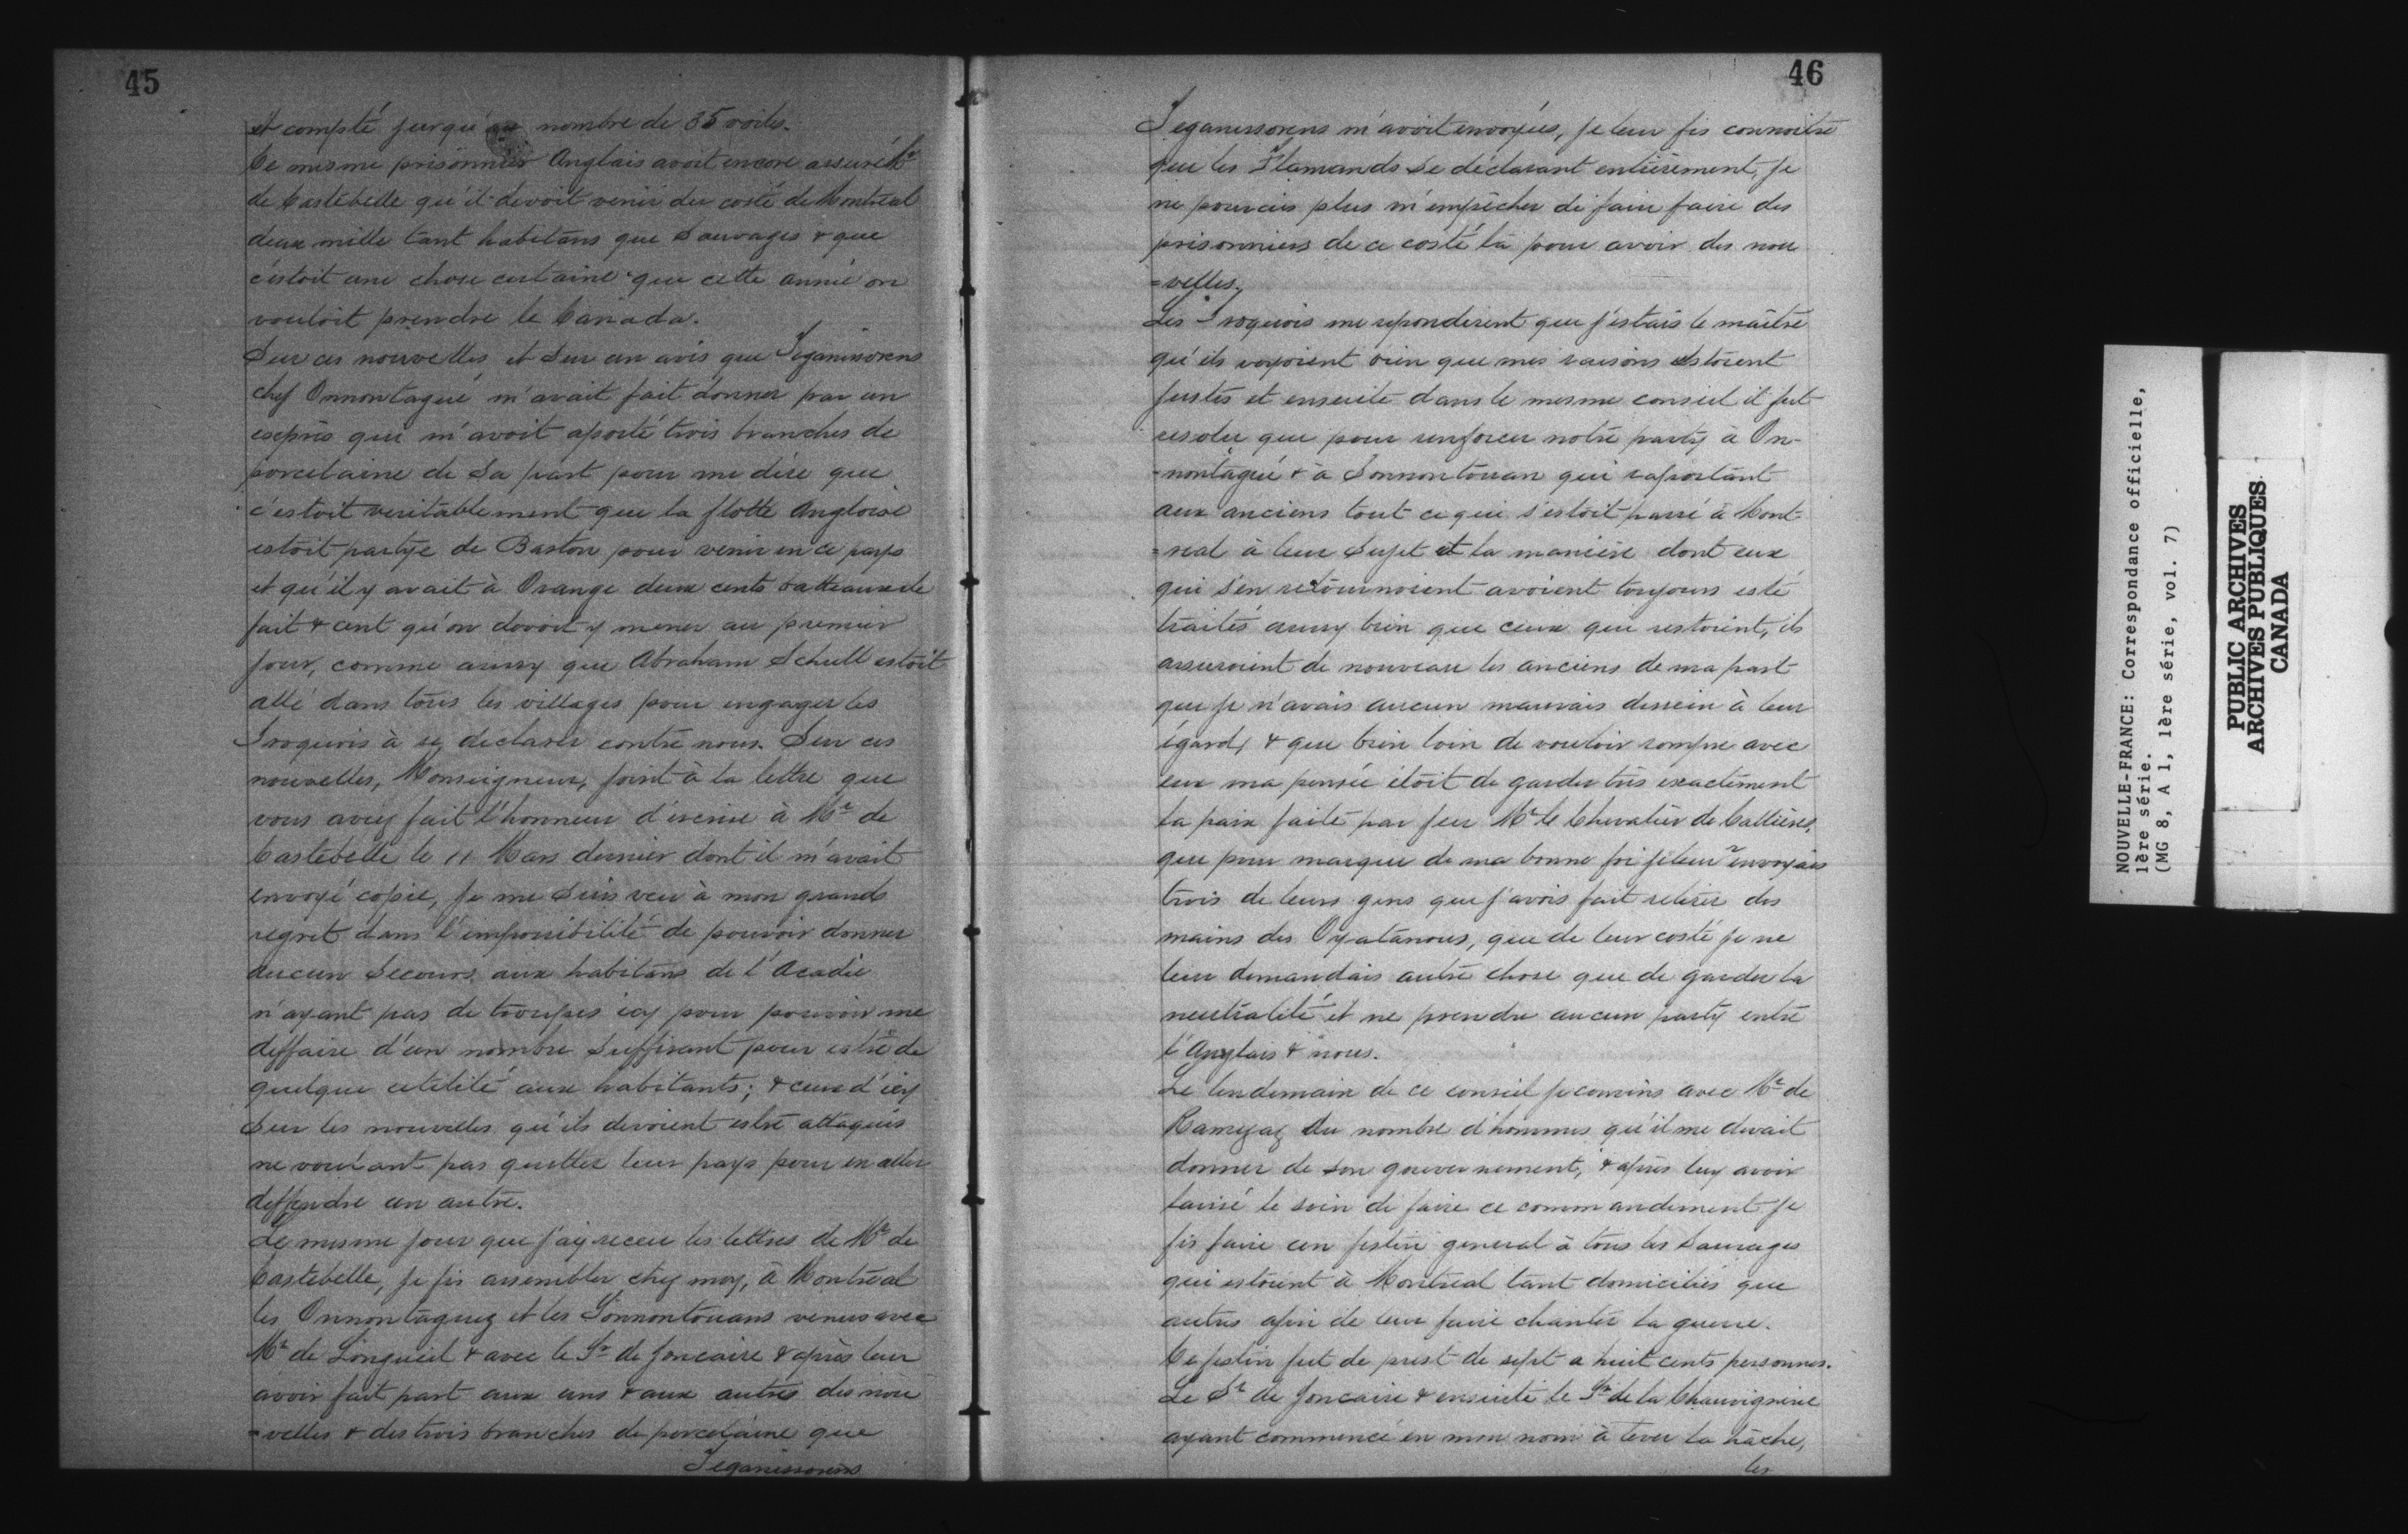 45
et compté jusqu'au nombre de 35 voiles.
Ce mesme prisonnier Anglais avoit encore assuré Mr
de Castebelle qu'il devoit venir du costé de Montreal
deux mille tant habitans que Sauvages & que
c'estoit une chose certaine que cette année on
vouloit prendre le Canada.
Sur ces nouvelles et sur un avis que Teganissorens
chef Onnontagué m'avait fait donner par un
exprès qui m'avoit aporté trois branches de
porcelaine de Sa part pour me dire que
c'estoit veritablement que la flotte Angloise
estoit partye de Baston pour venir en ce pays
et qu'il y avait à Orange deux cents batteaux de
fait & cent qu'on devoit y mener au premier
jour, comme aussy que Abraham Schull estoit
allé dans tous les villages pour engager les
Iroquois à se declarer contre nous. Sur ces
nouvelles, Monseigneur, joint à la lettre que
vous avez fait l'honneur d'ecrire à Mr de
Castebelle le 11 Mars dernier dont il m'avait
envoyé copie, je me suis veu à mon grand
regret dans l'impossibilité de pouvoir donner
aucun Secours aux habitans de l'Acadie
n'ayant pas de troupes icy pour pouvoir me
deffaire d'un nombre suffisant pour estre de
quelque utilité aux habitants; & ceux d'icy
sur les nouvelles qu'ils devoient estre attaqués
ne voulant pas quitter leur pays pour en aller
deffendre un autre.
Le mesme jour que j'ay receu les lettres de Mr de
Castebelle, je fis assembler chez moy, à Montréal
les Onnontaguez et les Sonnontouans venus avec
Mr de Longueil & avec le Sr de Joncaire & après leur
avoir fait part aux uns & aux autres des nou
=velles & des trois branches de porcelaine que
Teganissorens
46
Teganissorens m'avoit envoyées, je leur fis connoitre
que les Flamands se déclarant entièrement, je
ne pouvois plus m'empêcher de faire faire des
prisonniers de ce costé là pour avoir des nou
=velles.
Les Iroquois me repondirent que j'estais le maître
qu'ils voyoient bien que mes raisons estoient
justes et ensuite dans le mesme conseil il fut
resolu que pour renforcer notre party à On-
=nontagué & à Sonnontouan qui raportant
aux anciens tout ce qui s'estoit passé à Mont-
=real à leur Sujet et la manière dont eux
qui s'en retournoient avoient toujours esté
traités aussy bien que ceux qui restoient, ils
assuroient de nouveau les anciens de ma part
que je n'avais aucun mauvais dessein à leur
égard, & que bien loin de vouloir rompre avec
eux ma pensée étoit de garder très exactement
la paix faite par feu Mr le Chevalier de Callières,
que pour marque de ma bonne foi je leur envoyais
trois de leurs gens que j'avois fait retirer des
mains des Oyatanous, que de leur costé je ne
leur demandais autre chose que de garder la
neutralité et ne prendre aucun party entre
l'Anglais & nous.
Le lendemain de ce conseil je convins avec Mr de
Ramezay du nombre d'hommes qu'il me devait
donner de son gouvernement, & après luy avoir
laissé le soin de faire ce commandement je
fis faire un festin general à tous les Sauvages
qui estoient à Montréal tant domiciliés que
autres afin de leur faire chanter la guerre.
Ce festin fut de prest de sept a huit cents personnes.
Le Sr de Joncaire & ensuite le Sr de la Chauvignerie
ayant commencé en mon nom à lever la hâche,
les
NOUVELLE-FRANCE: Correspondance officielle,
1ère série.
(MG 8, A 1, 1ère série, vol. 7)
PUBLIC ARCHIVES
ARCHIVES PUBLIQUES
CANADA